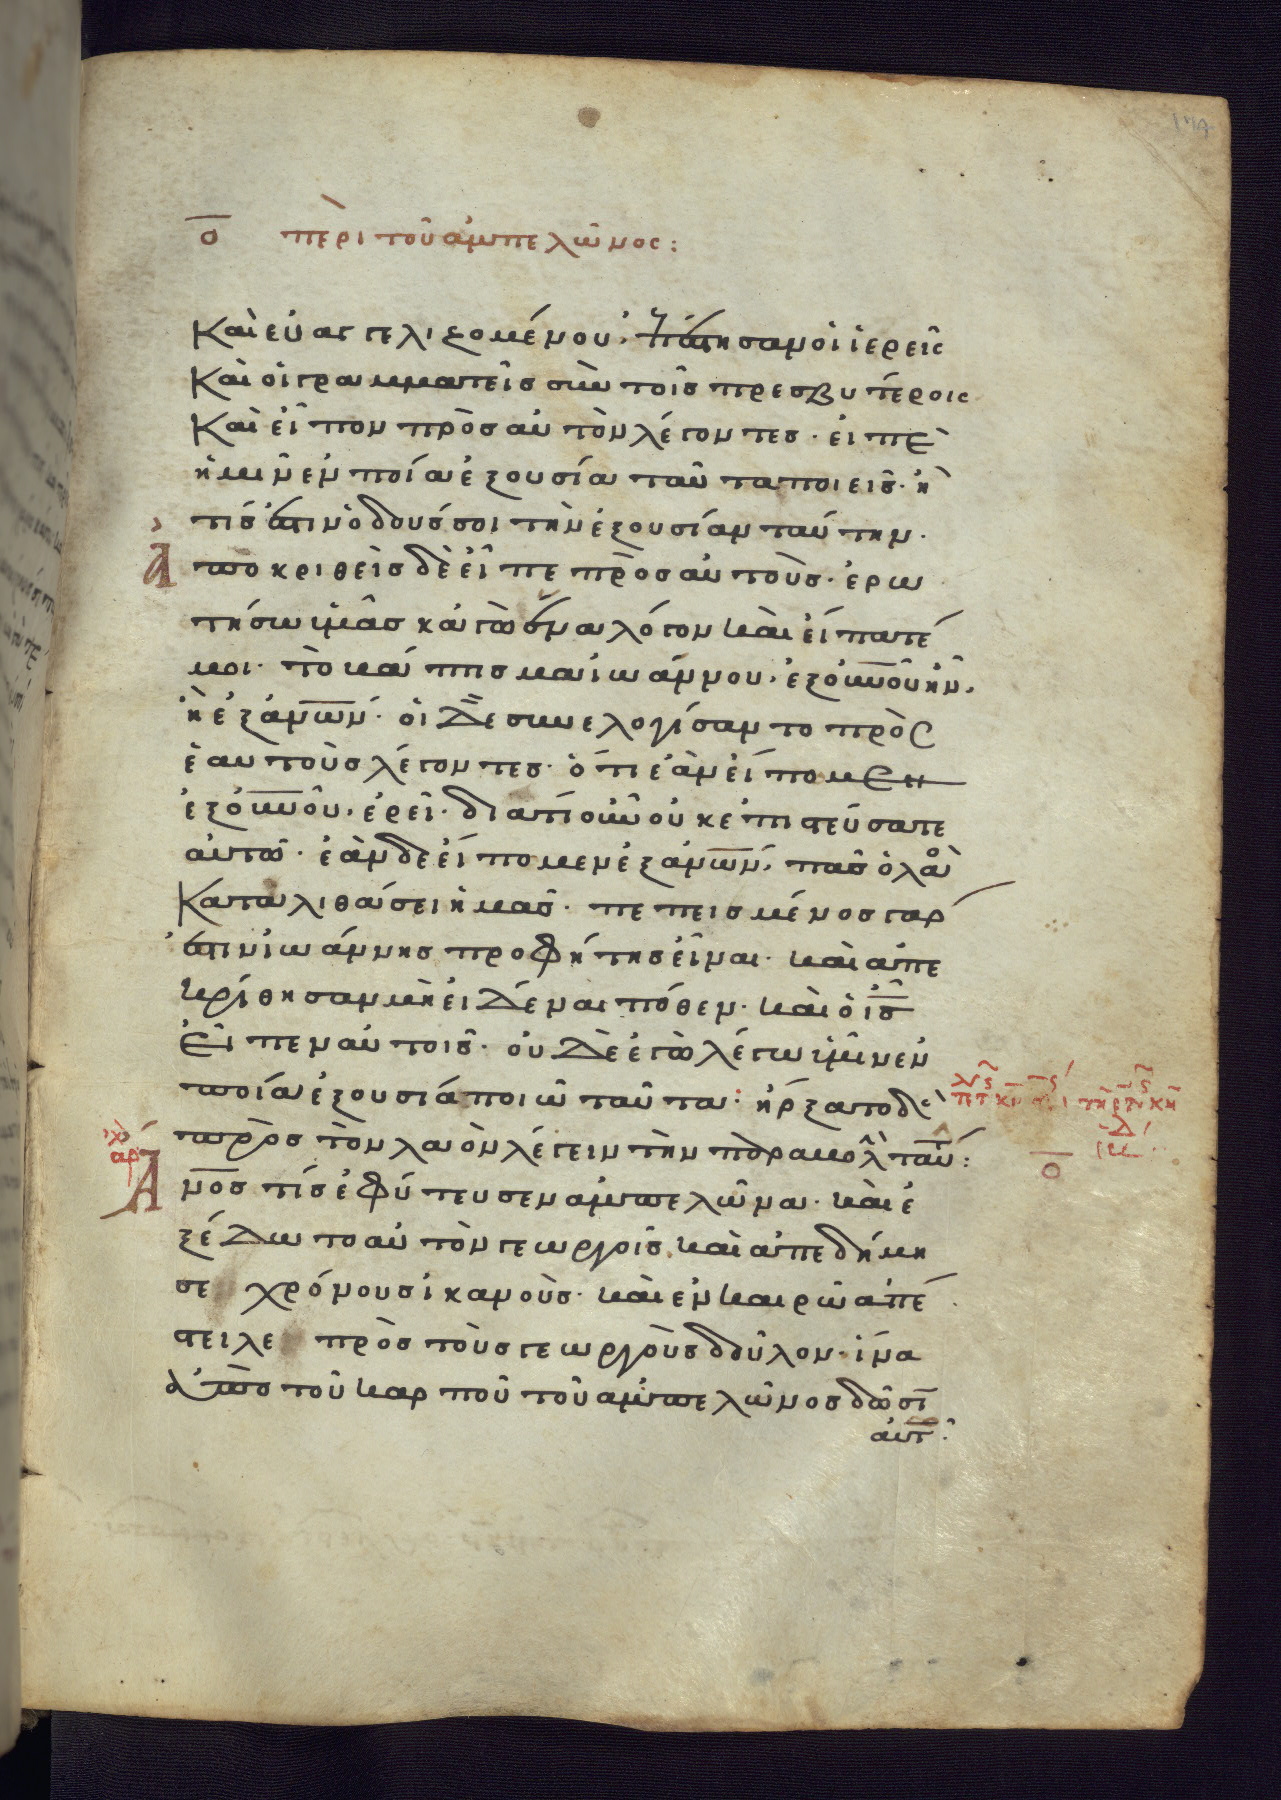 ο περι τοῦ ἀμπελῶνος:
Καὶ εὐαγγελιζομένου, ἐπέστησαν οἱ ἱερεῖς
Καὶ οἱ γραμματεῖς σὺν τοῖς πρεσβυτέροις
Καὶ εἶπον πρὸς αὐτὸν λέγοντες· εἰπὲ
ἡμῖν ἐν ποία ἐξουσία ταῦτα ποιεῖς· ἢ
τίς ἐστιν ὁ δούς σοι τὴν ἐξουσίαν ταύτην·
Ἀποκριθεὶς δὲ εἶπε πρὸς αὐτοὺς· ἐρω
τήσω ὑμᾶς κἀγὼ ἕνα λόγον καὶ εἴπατέ
μοι· τὸ βάπτισμα ἰωάννου, ἐξ οὐνοῦ ἦν,
ἢ ἐξ ἀνων· οἱ δὲ συνελογίσαντο πρὸς
ἑαυτοὺς λέγοντες· ὅτι ἐὰν εἴπομεν
ἐξ οὐνοῦ, ἐρεῖ· διατί οὖν οὐκ ἐπιστεύσατε
αὐτῶ· ἐὰν δὲ εἴπομεν ἐξ ἀνων, πᾶς ὁ λαὸς
Καταλιθάσει ἡμᾶς· πεπεισμένος γάρ
ἐστιν ἰωάννης προφήτης εἶναι· καὶ ἀπε
κρίθησαν μὴ εἰδέναι πόθεν· καὶ ὁ ις
εἶπεν αὐτοῖς· οὐδὲ ἐγὼ λέγω ὑμῖν ἐν
ποία ἐξουσία ποιῶ ταῦτα: ἤρξατο δὲ
πρὸς τὸν λαὸν λέγειν τὴν παραβολ ταύ:
Ανος τίς ἐφύτευσεν ἀμπελῶνα· καὶ ἐ
ξέδωτο αὐτὸν γεωργοῖς, καὶ ἀπεδήμη
σε χρόνους ἱκανοὺς· καὶ ἐν καιρῶ ἀπέ
στειλε πρὸς τοὺς γεωργοὺς δοῦλον· ἵνα
ἀπὸ τοῦ καρποῦ τοῦ ἀμπελῶνος δῶσι
αὐτ
ἀρ
ο